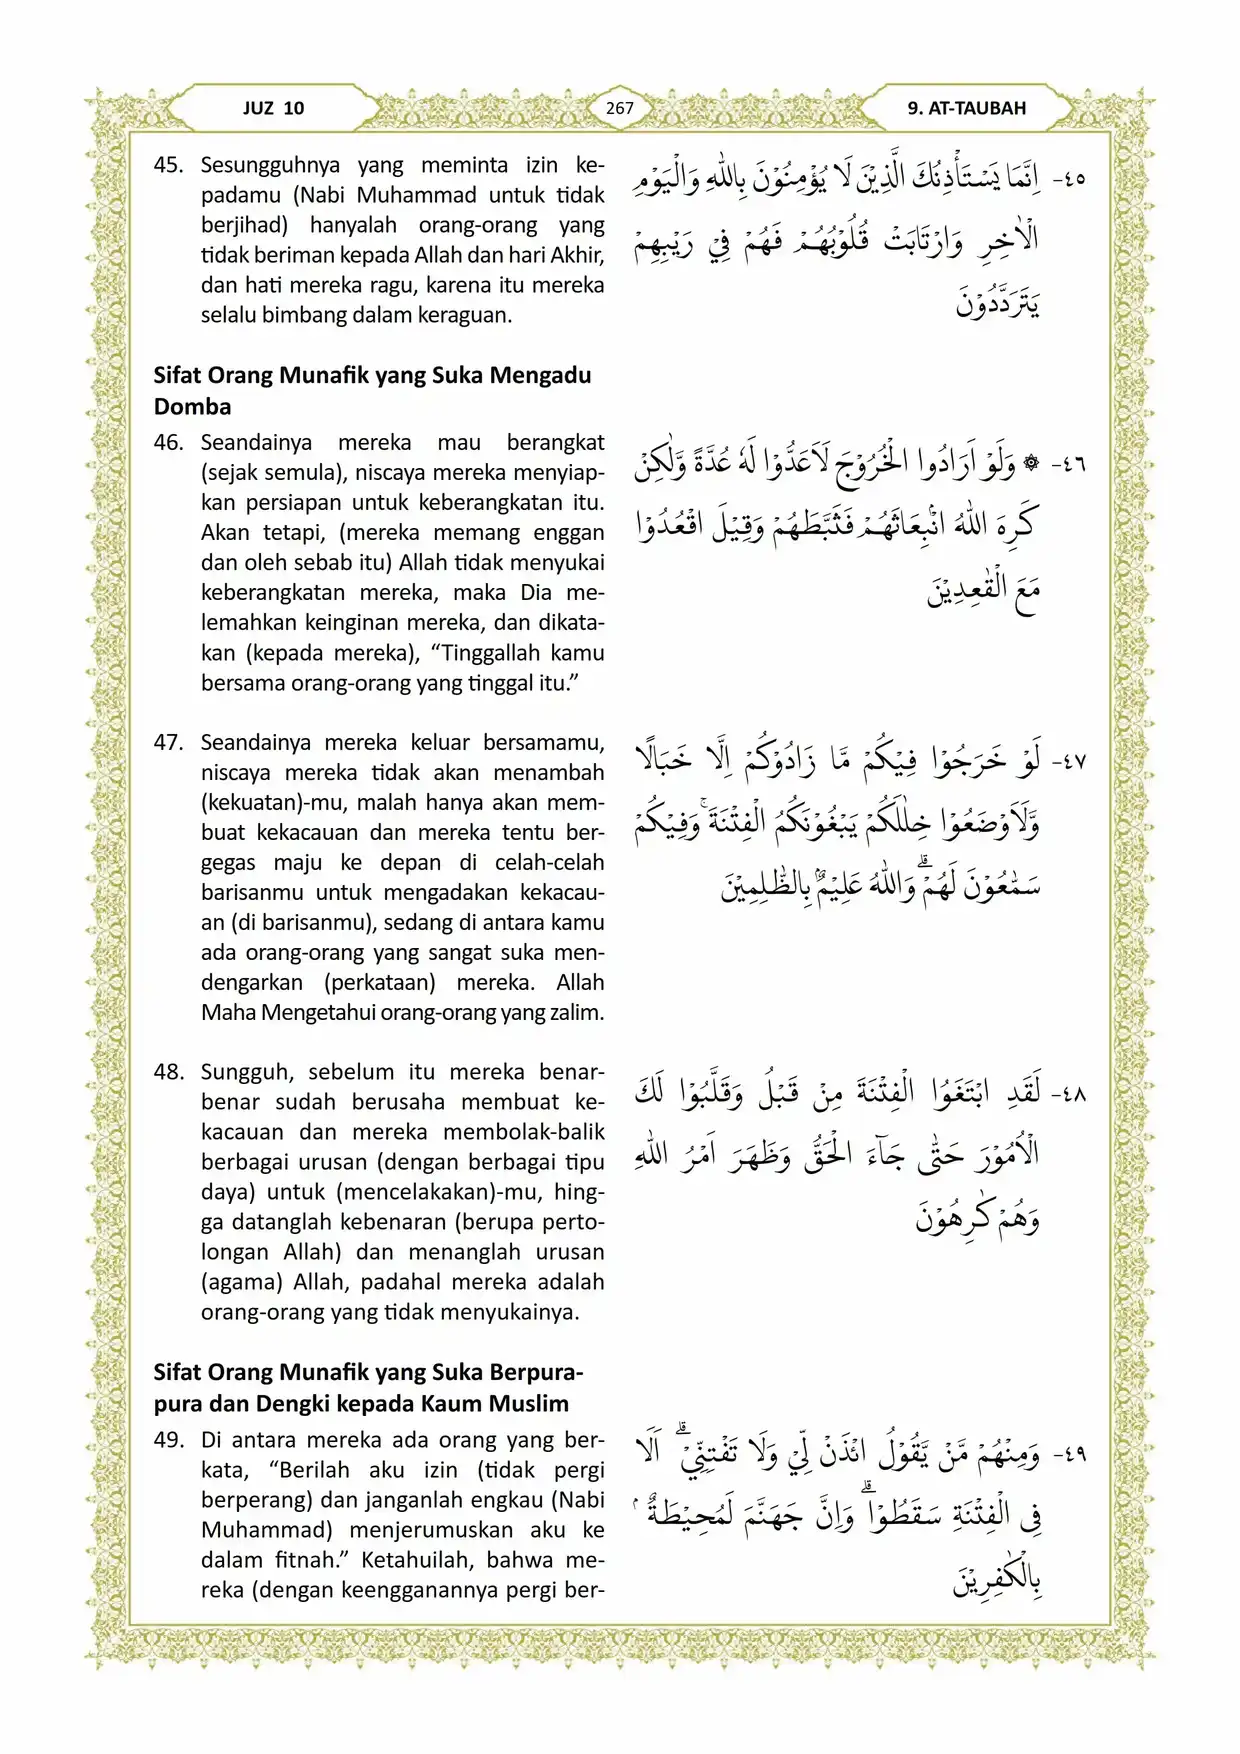 JUZ 10
267
9. AT-TAUBAH
45. Sesungguhnya yang meminta izin ke-
padamu (Nabi Muhammad untuk tidak
berjihad) hanyalah orang-orang yang
tidak beriman kepada Allah dan hari Akhir,
dan hati mereka ragu, karena itu mereka
selalu bimbang dalam keraguan.
٤٥- اِنَّمَا يَسْتَأْذِنُكَ الَّذِيْنَ لَا يُؤْمِنُوْنَ بِاللّٰهِ وَالْيَوْمِ
الْاٰخِرِ وَارْتَابَتْ قُلُوْبُهُمْ فَهُمْ فِيْ رَيْبِهِمْ
يَتَرَدَّدُوْنَ
Sifat Orang Munafik yang Suka Mengadu
Domba
46. Seandainya mereka mau berangkat
(sejak semula), niscaya mereka menyiap-
kan persiapan untuk keberangkatan itu.
Akan tetapi, (mereka memang enggan
dan oleh sebab itu) Allah tidak menyukai
keberangkatan mereka, maka Dia me-
lemahkan keinginan mereka, dan dikata-
kan (kepada mereka), “Tinggallah kamu
bersama orang-orang yang tinggal itu.”
٤٦- ۞ وَلَوْ اَرَادُوا الْخُرُوْجَ لَاَعَدُّوْا لَهٗ عُدَّةً وَّلٰكِنْ
كَرِهَ اللّٰهُ انْۢبِعَاثَهُمْ فَثَبَّطَهُمْ وَقِيْلَ اقْعُدُوْا
مَعَ الْقٰعِدِيْنَ
47. Seandainya mereka keluar bersamamu,
niscaya mereka tidak akan menambah
(kekuatan)-mu, malah hanya akan mem-
buat kekacauan dan mereka tentu ber-
gegas maju ke depan di celah-celah
barisanmu untuk mengadakan kekacau-
an (di barisanmu), sedang di antara kamu
ada orang-orang yang sangat suka men-
dengarkan (perkataan) mereka. Allah
Maha Mengetahui orang-orang yang zalim.
٤٧- لَوْ خَرَجُوْا فِيْكُمْ مَّا زَادُوْكُمْ اِلَّا خَبَالًا
وَّلَاَوْضَعُوْا خِلٰلَكُمْ يَبْغُوْنَكُمُ الْفِتْنَةَۚ وَفِيْكُمْ
سَمّٰعُوْنَ لَهُمْۗ وَاللّٰهُ عَلِيْمٌۢ بِالظّٰلِمِيْنَ
48. Sungguh, sebelum itu mereka benar-
benar sudah berusaha membuat ke-
kacauan dan mereka membolak-balik
berbagai urusan (dengan berbagai tipu
daya) untuk (mencelakakan)-mu, hing-
ga datanglah kebenaran (berupa perto-
longan Allah) dan menanglah urusan
(agama) Allah, padahal mereka adalah
orang-orang yang tidak menyukainya.
٤٨- لَقَدِ ابْتَغَوُا الْفِتْنَةَ مِنْ قَبْلُ وَقَلَّبُوْا لَكَ
الْاُمُوْرَ حَتّٰى جَاۤءَ الْحَقُّ وَظَهَرَ اَمْرُ اللّٰهِ
وَهُمْ كٰرِهُوْنَ
Sifat Orang Munafik yang Suka Berpura-
pura dan Dengki kepada Kaum Muslim
49. Di antara mereka ada orang yang ber-
kata, “Berilah aku izin (tidak pergi
berperang) dan janganlah engkau (Nabi
Muhammad) menjerumuskan aku ke
dalam fitnah.” Ketahuilah, bahwa me-
reka (dengan keengganannya pergi ber-
٤٩- وَمِنْهُمْ مَّنْ يَّقُوْلُ ائْذَنْ لِّيْ وَلَا تَفْتِنِّيْۗ اَلَا
فِى الْفِتْنَةِ سَقَطُوْاۗ وَاِنَّ جَهَنَّمَ لَمُحِيْطَةٌ ۢ
بِالْكٰفِرِيْنَ